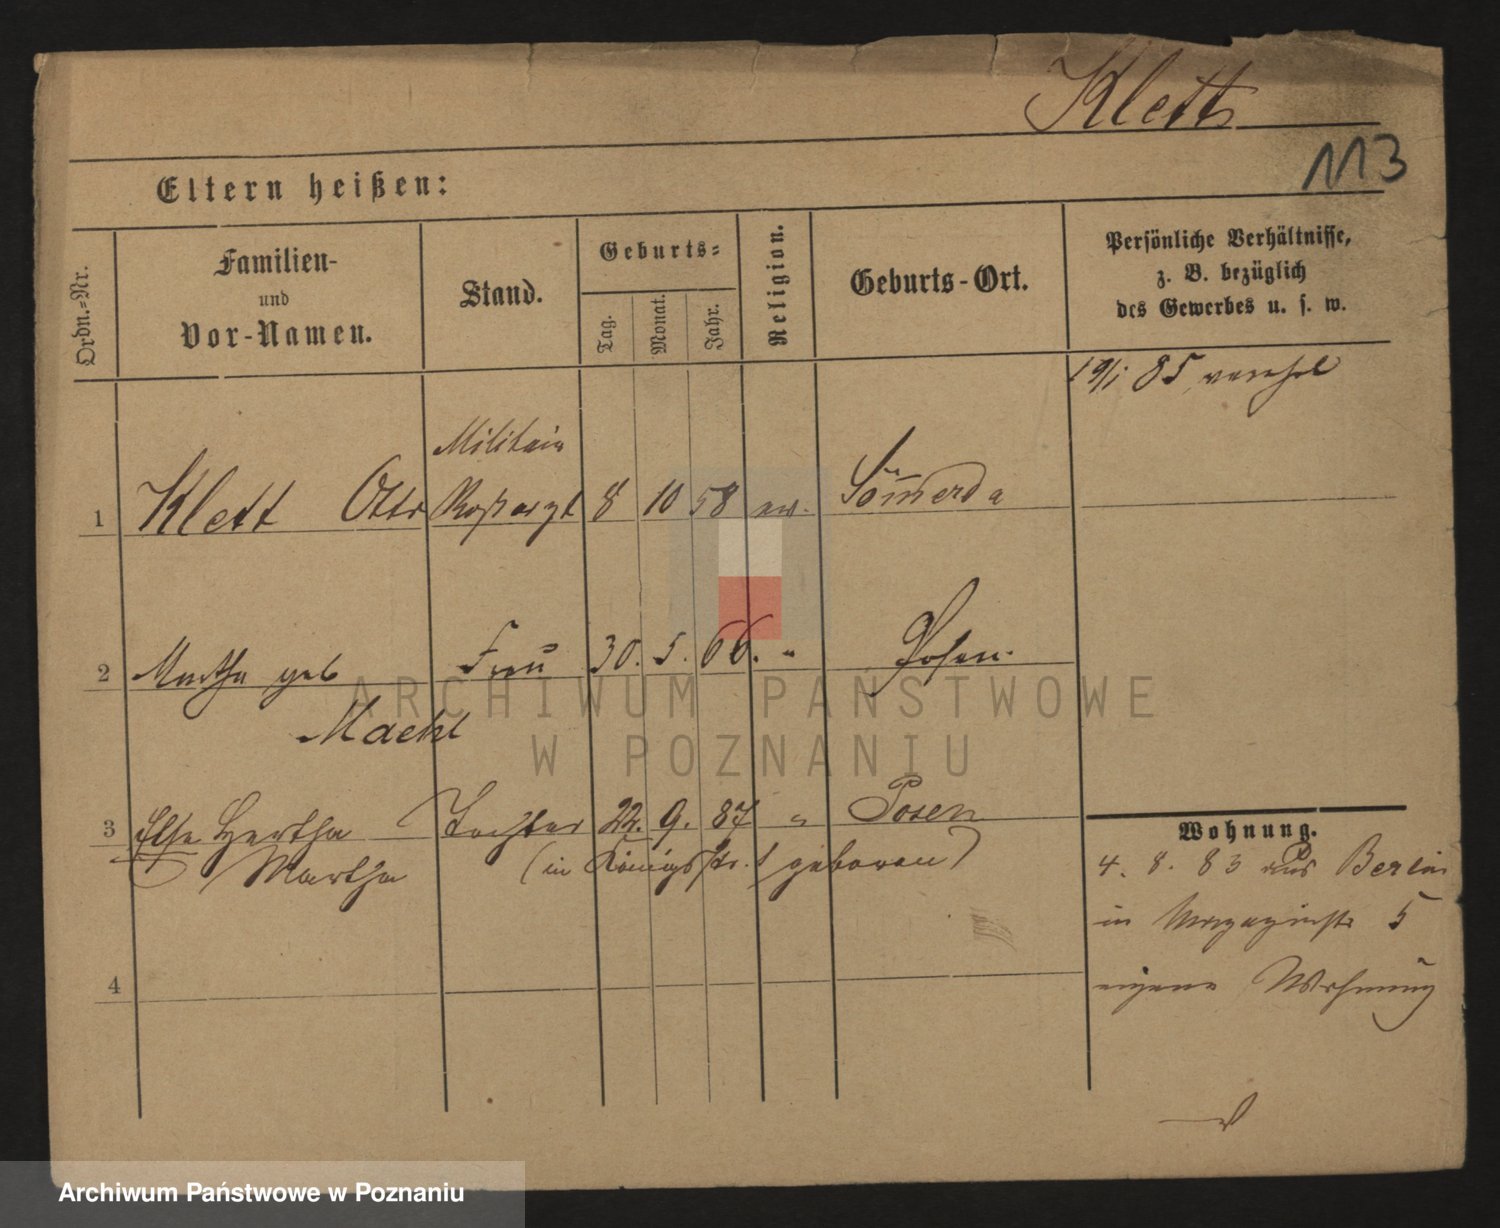 Klett
113
Eltern heißen:
Ordn.=Nr.
Familien-
und
Vor-Namen.
Stand.
Geburts=
Tag.
Monat.
Jahr.
Religion.
Geburts-Ort.
Persönliche Verhältnisse,
z. B. bezüglich
des Gewerbes u. s. w.
85 verehel
Militair
1 Klett Otto Roßarzt 8 10 58 ev. Sömerda
2 Martha geb Frau 30. 5. 66. " Posen.
Maehl
3 Else Hertha Tochter 22. 9. 87 " Posen
Martha (in Königsstr. 1 geboren)
4
Wohnung.
4. 8. 83 aus Berlin
in Magazinstr 5
eigene Wohnung
ARCHIWUM PAŃSTWOWE
W POZNANIU
Archiwum Państwowe w Poznaniu